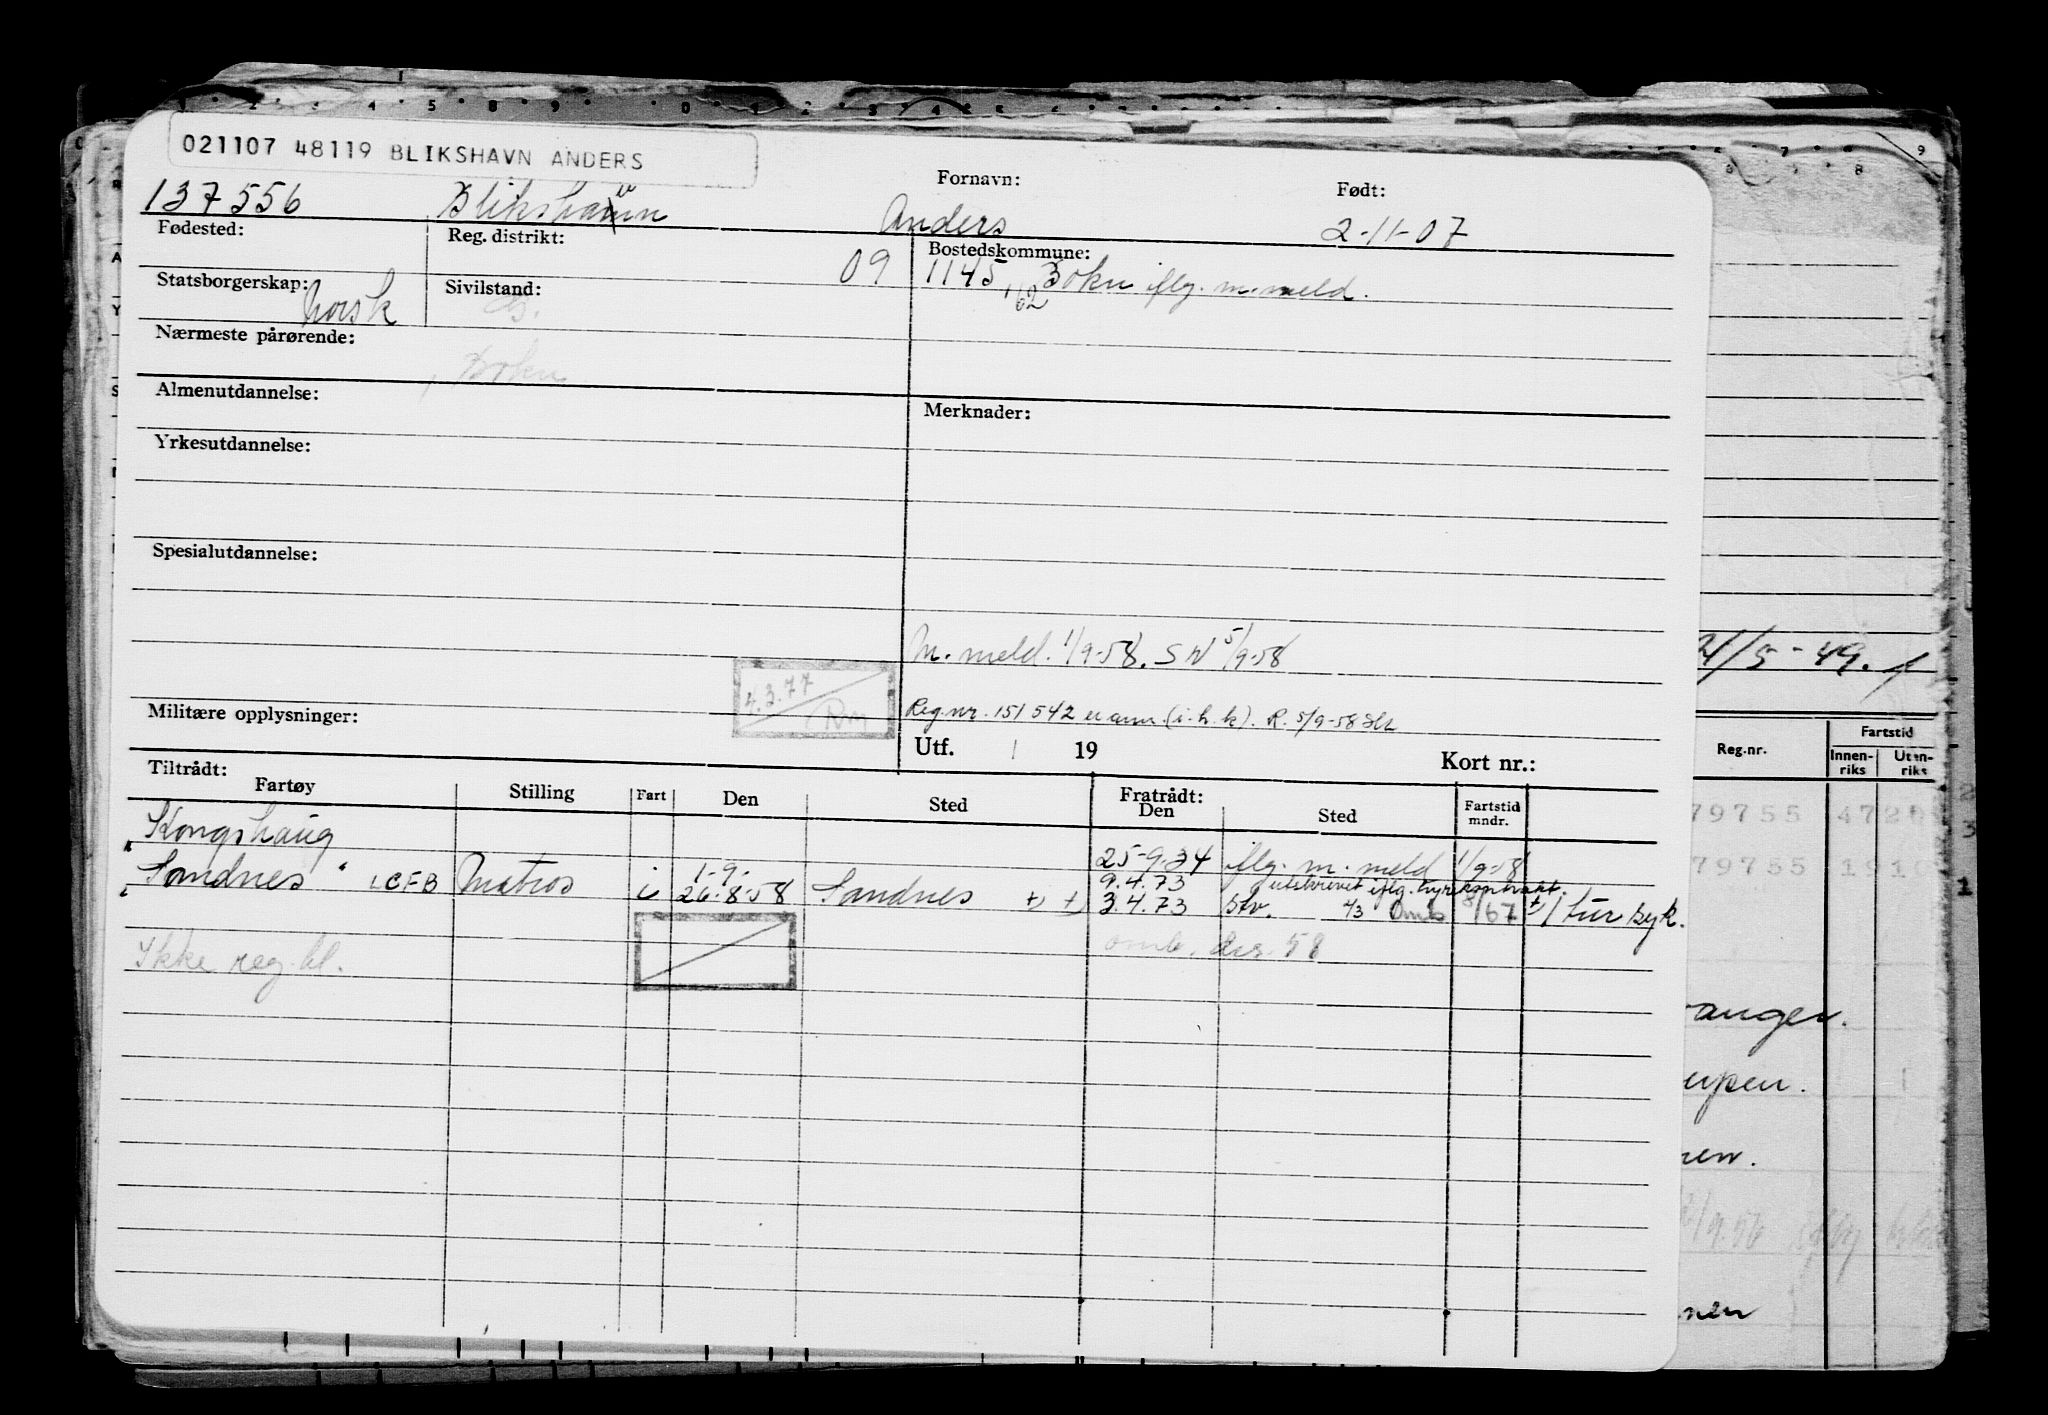 021107 48119 BLIKSHAVN ANDERS
Fornavn:
Født:
137556 Blikshavn Anders 2-11-07
Fødested:
Reg. distrikt: 09
Bostedskommune:
1145 Bokn iflg. m. meld.
1/62
Statsborgerskap: Norsk
Sivilstand: G.
Nærmeste pårørende:
Bokn
Almenutdannelse:
Merknader:
Yrkesutdannelse:
Spesialutdannelse:
M. meld. 1/9-58. SN 5/9-58
4.3.77
Militære opplysninger:
Reg nr. 151542 er ann. (i.h.k). R. 5/9-58
Utf. / 19
Kort nr.:
Tiltrådt:
Fartøy Stilling Fart Den Sted Fratrådt: Den Sted Fartstid mndr.
Kongshaug 25-9-34 iflg. m. meld 1/9-58
1-9- 9.4.73 utskrevet iflg. hyrekontrakt.
"Sandnes" LCFB Matros i 26-8-58 Sandnes 3.4.73 Sv. 4/3 Omb 8/67 1 tur syk.
Ikke reg. bl.
omb. des. 58
21/5-49.
Reg.nr.
Fartstid
Innen-
riks
Uten-
riks
79755 472
79755 191
anger.
erpen.
nen.
/9.56
nen